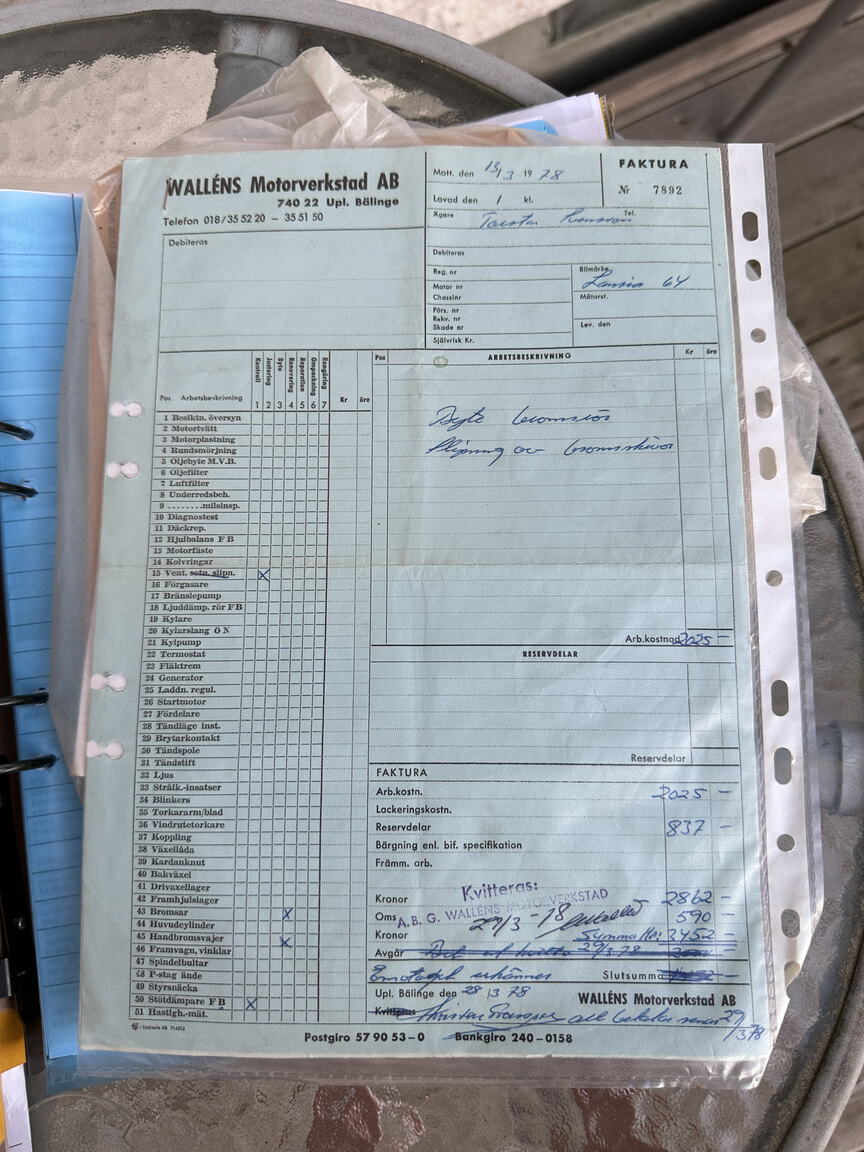 WALLÉNS Motorverkstad AB
740 22 Upl. Bälinge
Telefon 018/35 52 20 – 35 51 50
Debiteras
Mott. den 13/3 19 78
Lovad den / kl.
FAKTURA
Nr 7892
Ägare Tel.
Debiteras
Reg. nr
Motor nr
Chassinr
Förs. nr
Rekv. nr
Skade nr
Självrisk Kr.
Bilmärke
Lancia 64
Mätarst.
Lev. den
Pos Arbetsbeskrivning
Kontroll 1
Justering 2
Byte 3
Renovering 4
Reparation 5
Ompackning 6
Rengöring 7
Kr öre
1 Besiktn. översyn
2 Motortvätt
3 Motorplastning
4 Rundsmörjning
5 Oljebyte M.V.B.
6 Oljefilter
7 Luftfilter
8 Underredsbeh.
9 ........milsinsp.
10 Diagnostest
11 Däckrep.
12 Hjulbalans F B
13 Motorfäste
14 Kolvringar
15 Vent. sotn. slipn. X
16 Förgasare
17 Bränslepump
18 Ljuddämp. rör F B
19 Kylare
20 Kylarslang Ö N
21 Kylpump
22 Termostat
23 Fläktrem
24 Generator
25 Laddn. regul.
26 Startmotor
27 Fördelare
28 Tändläge inst.
29 Brytarkontakt
30 Tändspole
31 Tändstift
32 Ljus
33 Strålk.-insatser
34 Blinkers
35 Torkararm/blad
36 Vindrutetorkare
37 Koppling
38 Växellåda
39 Kardanknut
40 Bakväxel
41 Drivaxellager
42 Framhjulslager
43 Bromsar X
44 Huvudcylinder
45 Handbromsvajer X
46 Framvagn, vinklar
47 Spindelbultar
48 P-stag ände
49 Styrsnäcka
50 Stötdämpare F B X
51 Hastigh.-mät.
Pos ARBETSBESKRIVNING Kr öre
Byte bromsrör
slipning av bromsskivor
Arb.kostnad 2025 –
RESERVDELAR
Reservdelar
FAKTURA
Arb.kostn. 2025 –
Lackeringskostn.
Reservdelar 837 –
Bärgning enl. bif. specifikation
Främm. arb.
Kvitteras:
A. B. G. WALLÉNS MOTORVERKSTAD
29/3 – 78
Kronor 2862 –
Oms 590 –
Kronor Summa Kr. 3452 –
Avgår 29/3 78
Emottaget erkännes Slutsumma
Upl. Bälinge den 28/3 78 WALLÉNS Motorverkstad AB
Kvitteras
29/3 78
Postgiro 57 90 53–0 Bankgiro 240–0158